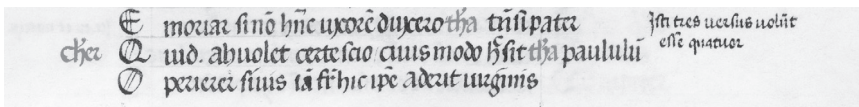 E moriar sinō hāc uxorē duxero tha tn̄ si pater
Isti tres uersus uolūt
esse quatuor
cher Q uid. ah uolet certe scio ciuis modo h̄ sit tha paululū
O perierer si uis iā fr̄ hic ip̄e aderit uirginis